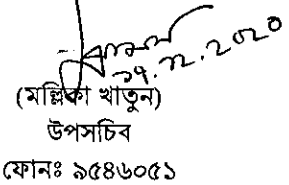 ২৭.১২.২০২০
(মল্লিকা খাতুন)
উপসচিব
ফোনঃ ৯৫৪৬০৫১